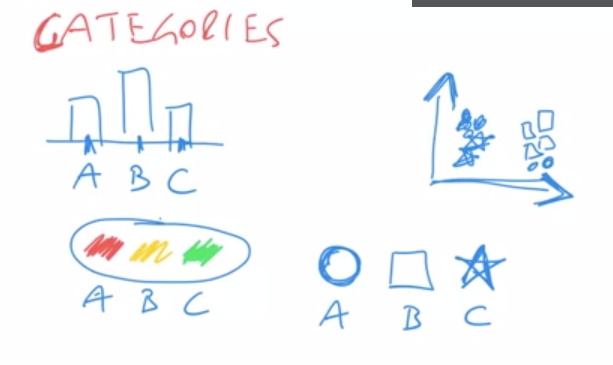 CATEGORIES
A B C
A B C
A B C